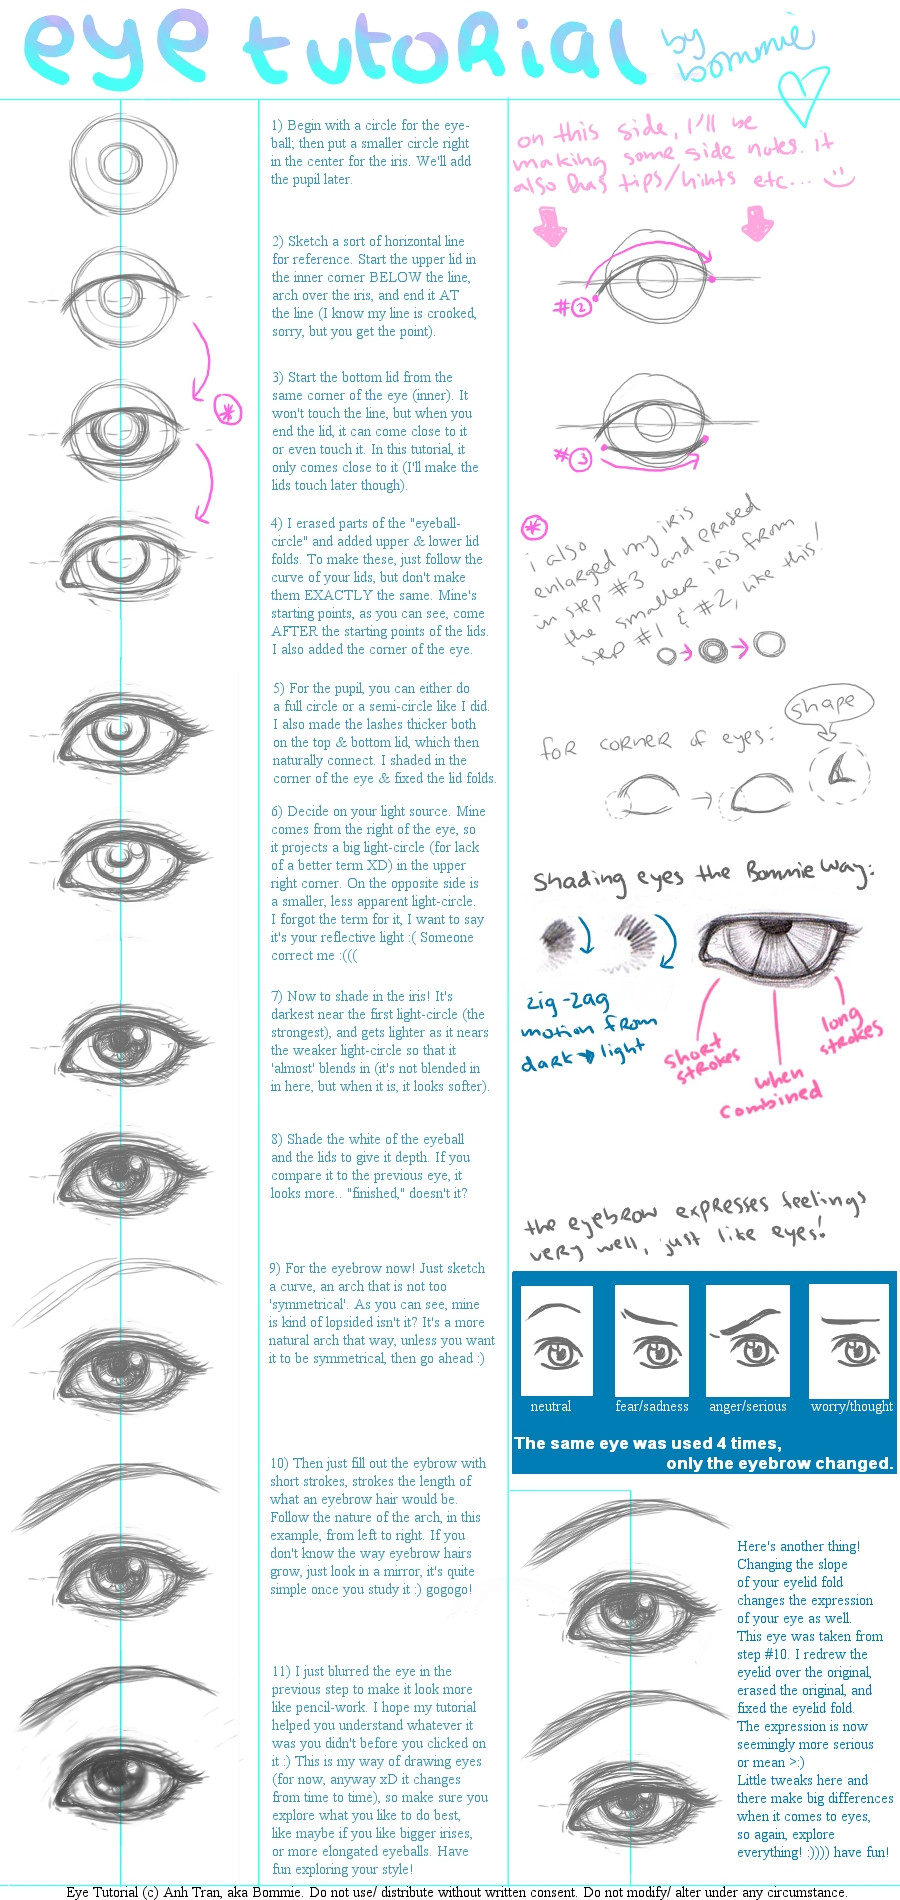 eye tutorial
by bommie
1) Begin with a circle for the eye-
ball; then put a smaller circle right
in the center for the iris. We'll add
the pupil later.
2) Sketch a sort of horizontal line
for reference. Start the upper lid in
the inner corner BELOW the line,
arch over the iris, and end it AT
the line (I know my line is crooked,
sorry, but you get the point).
3) Start the bottom lid from the
same corner of the eye (inner). It
won't touch the line, but when you
end the lid, it can come close to it
or even touch it. In this tutorial, it
only comes close to it (I'll make the
lids touch later though).
4) I erased parts of the "eyeball-
circle" and added upper & lower lid
folds. To make these, just follow the
curve of your lids, but don't make
them EXACTLY the same. Mine's
starting points, as you can see, come
AFTER the starting points of the lids.
I also added the corner of the eye.
5) For the pupil, you can either do
a full circle or a semi-circle like I did.
I also made the lashes thicker both
on the top & bottom lid, which then
naturally connect. I shaded in the
corner of the eye & fixed the lid folds.
6) Decide on your light source. Mine
comes from the right of the eye, so
it projects a big light-circle (for lack
of a better term XD) in the upper
right corner. On the opposite side is
a smaller, less apparent light-circle.
I forgot the term for it, I want to say
it's your reflective light :( Someone
correct me :(((
7) Now to shade in the iris! It's
darkest near the first light-circle (the
strongest), and gets lighter as it nears
the weaker light-circle so that it
'almost' blends in (it's not blended in
in here, but when it is, it looks softer).
8) Shade the white of the eyeball
and the lids to give it depth. If you
compare it to the previous eye, it
looks more.. "finished," doesn't it?
9) For the eyebrow now! Just sketch
a curve, an arch that is not too
'symmetrical'. As you can see, mine
is kind of lopsided isn't it? It's a more
natural arch that way, unless you want
it to be symmetrical, then go ahead :)
10) Then just fill out the eybrow with
short strokes, strokes the length of
what an eyebrow hair would be.
Follow the nature of the arch, in this
example, from left to right. If you
don't know the way eyebrow hairs
grow, just look in a mirror, it's quite
simple once you study it :) gogogo!
11) I just blurred the eye in the
previous step to make it look more
like pencil-work. I hope my tutorial
helped you understand whatever it
was you didn't before you clicked on
it :) This is my way of drawing eyes
(for now, anyway xD it changes
from time to time), so make sure you
explore what you like to do best,
like maybe if you like bigger irises,
or more elongated eyeballs. Have
fun exploring your style!
on this side, I'll be
making some side notes. it
also has tips/hints etc... :)
#2
*
#3
*
i also
enlarged my iris
in step #3 and erased
the smaller iris from
step #1 & #2, like this!
shape
for corner of eyes:
Shading eyes the Bommie Way:
zig-zag
motion from
dark → light
short
strokes
when
combined
long
strokes
the eyebrow expresses feelings
very well, just like eyes!
neutral fear/sadness anger/serious worry/thought
The same eye was used 4 times,
only the eyebrow changed.
Here's another thing!
Changing the slope
of your eyelid fold
changes the expression
of your eye as well.
This eye was taken from
step #10. I redrew the
eyelid over the original,
erased the original, and
fixed the eyelid fold.
The expression is now
seemingly more serious
or mean >:)
Little tweaks here and
there make big differences
when it comes to eyes,
so again, explore
everything! :)))) have fun!
Eye Tutorial (c) Anh Tran, aka Bommie. Do not use/ distribute without written consent. Do not modify/ alter under any circumstance.